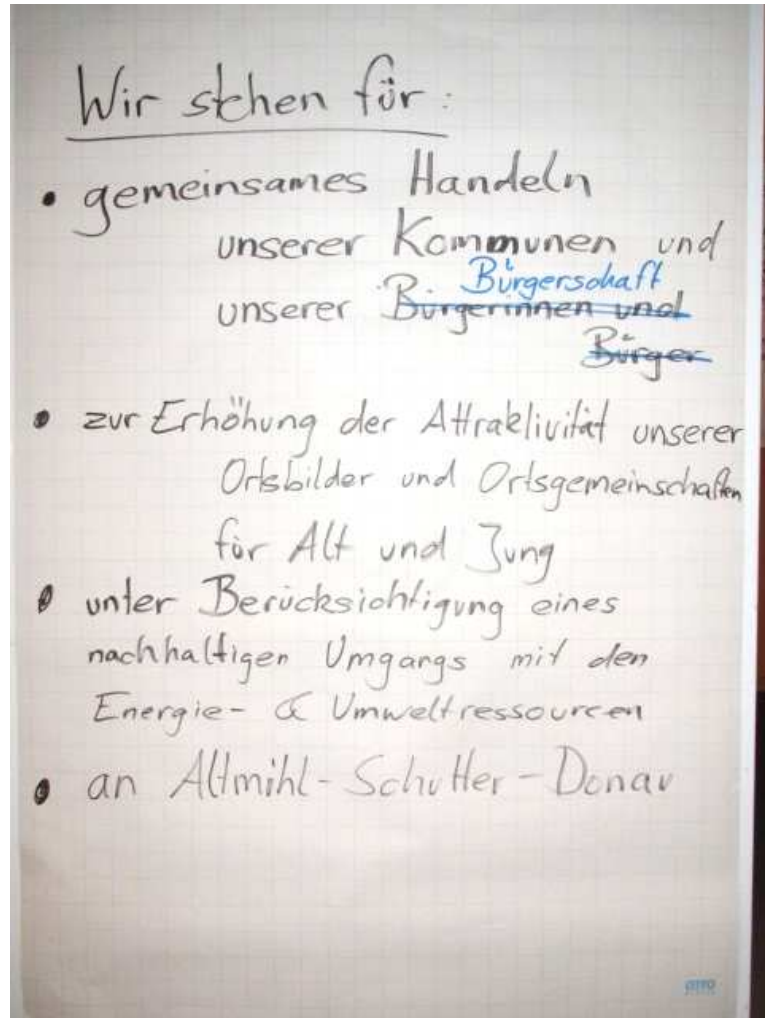 Wir stehen für:
• gemeinsames Handeln
unserer Kommunen und
Bürgerschaft
unserer Bürgerinnen und
Bürger
• zur Erhöhung der Attraktivität unserer
Ortsbilder und Ortsgemeinschaften
für Alt und Jung
• unter Berücksichtigung eines
nachhaltigen Umgangs mit den
Energie- & Umweltressourcen
• an Altmihl-Schutter-Donau